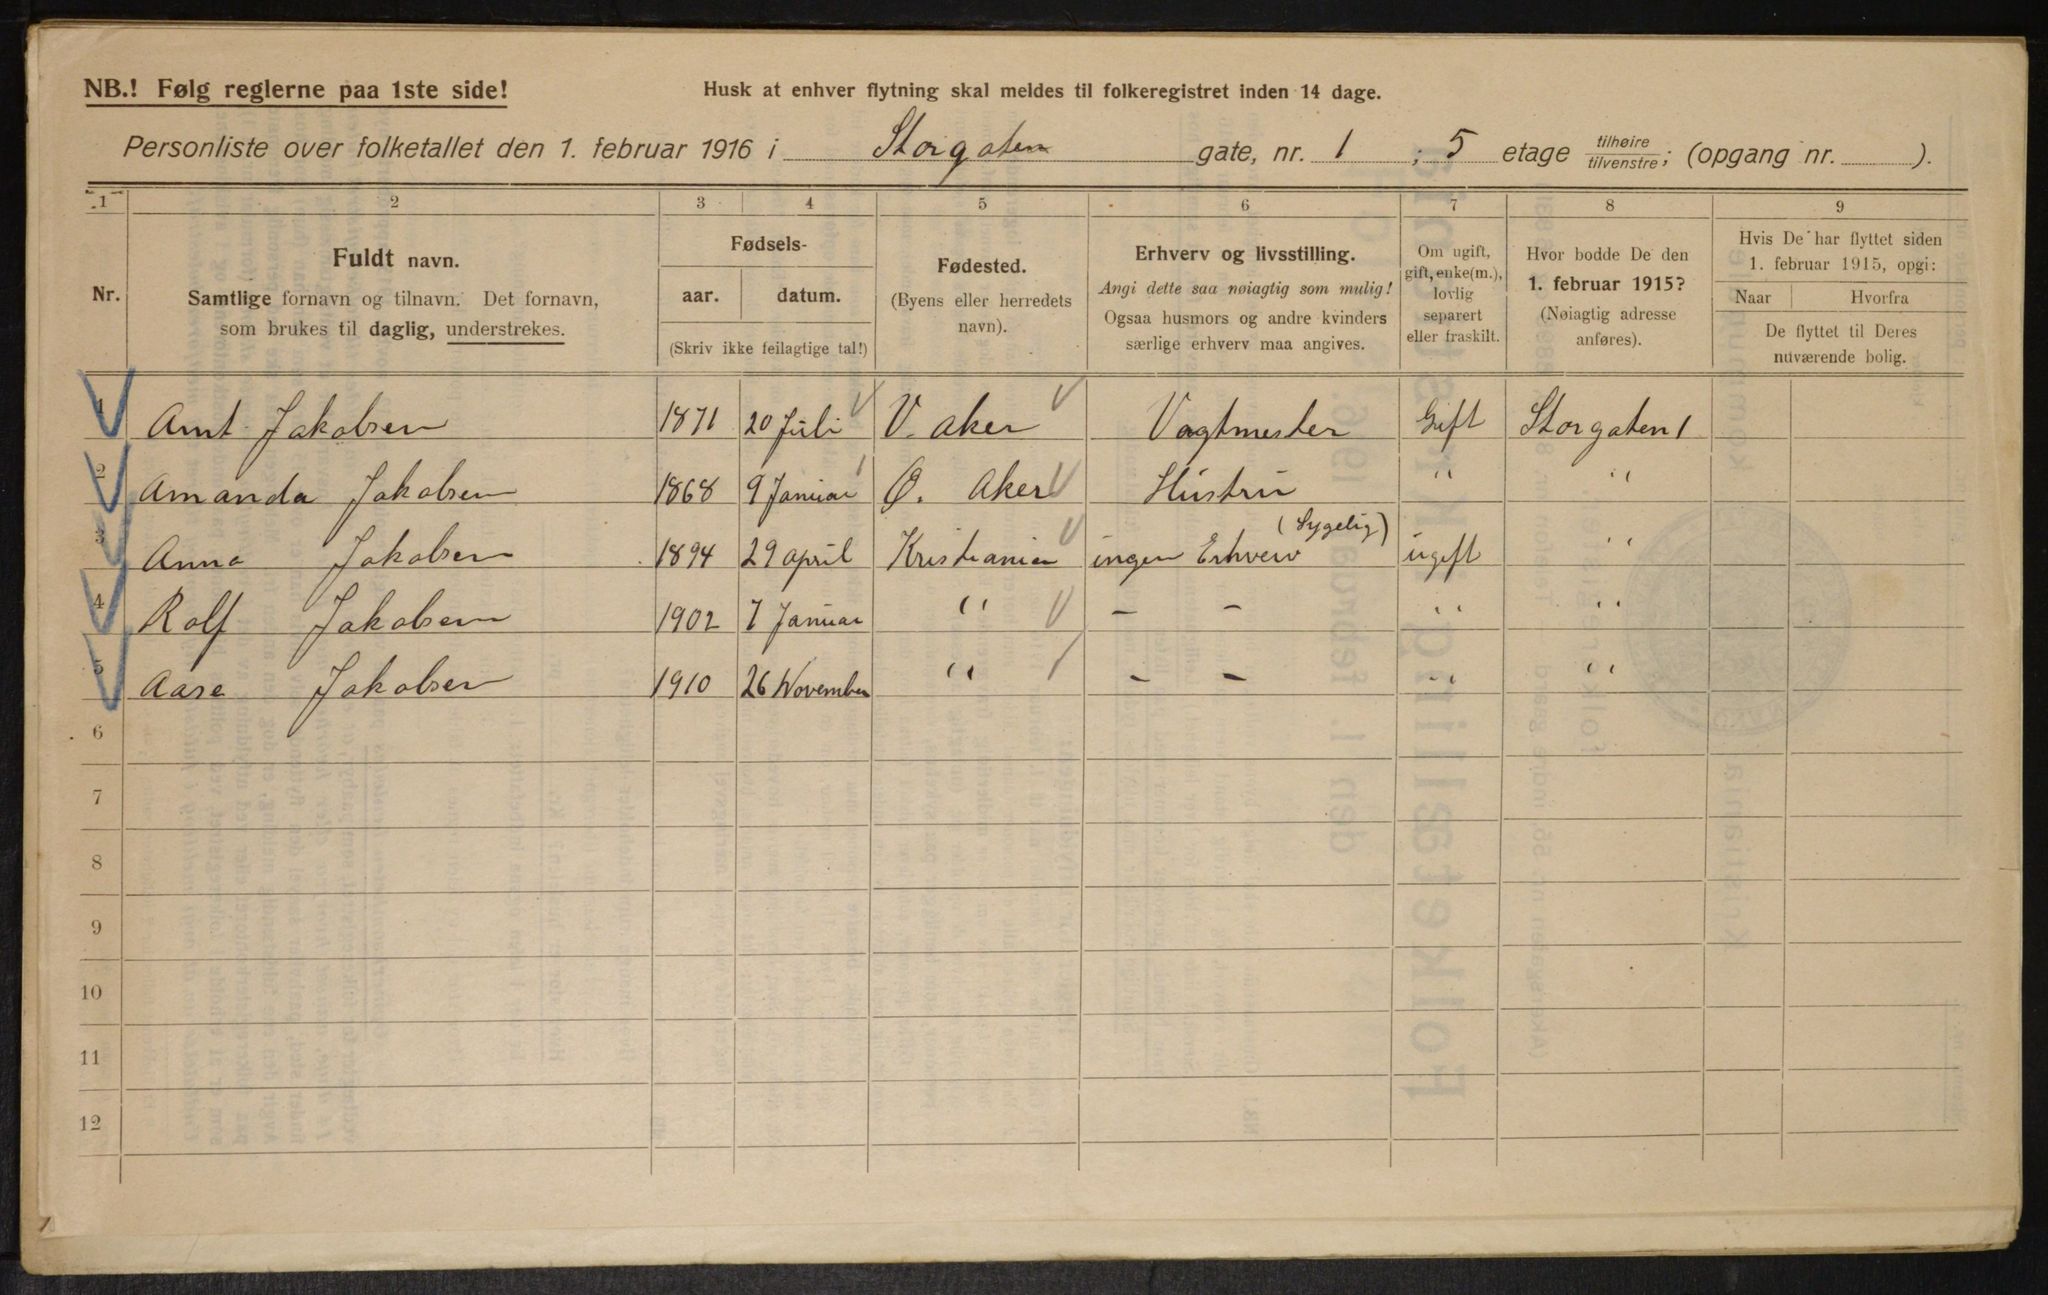 NB.! Følg reglerne paa 1ste side!
Husk at enhver flytning skal meldes til folkeregistret inden 14 dage.
Personliste over folketallet den 1. februar 1916 i Storgaten gate, nr. 1 ; 5 etage tilhøire/tilvenstre; (opgang nr. ).
1 2 3 4 5 6 7 8 9
Nr.
Fuldt navn.
Samtlige fornavn og tilnavn. Det fornavn,
som brukes til daglig, understrekes.
Fødsels-
aar. datum.
(Skriv ikke feilagtige tal!)
Fødested.
(Byens eller herredets
navn).
Erhverv og livsstilling.
Angi dette saa nøiagtig som mulig!
Ogsaa husmors og andre kvinders
særlige erhverv maa angives.
Om ugift,
gift, enke(m.),
lovlig
separert
eller fraskilt.
Hvor bodde De den
1. februar 1915?
(Nøiagtig adresse
anføres).
Hvis De har flyttet siden
1. februar 1915, opgi:
Naar Hvorfra
De flyttet til Deres
nuværende bolig.
1 Arnt Jakobsen 1871 20 Juli V. Aker Vagtmester Gift Storgaten 1
2 Amanda Jakobsen 1868 9 Januar Ø. Aker Hustru " "
3 Anna Jakobsen 1894 29 april Kristiania ingen Erhverv (Sygelig) ugift "
4 Rolf Jakobsen 1902 7 Januar " - - " "
5 Aase Jakobsen 1910 26 November " - - " "
6
7
8
9
10
11
12